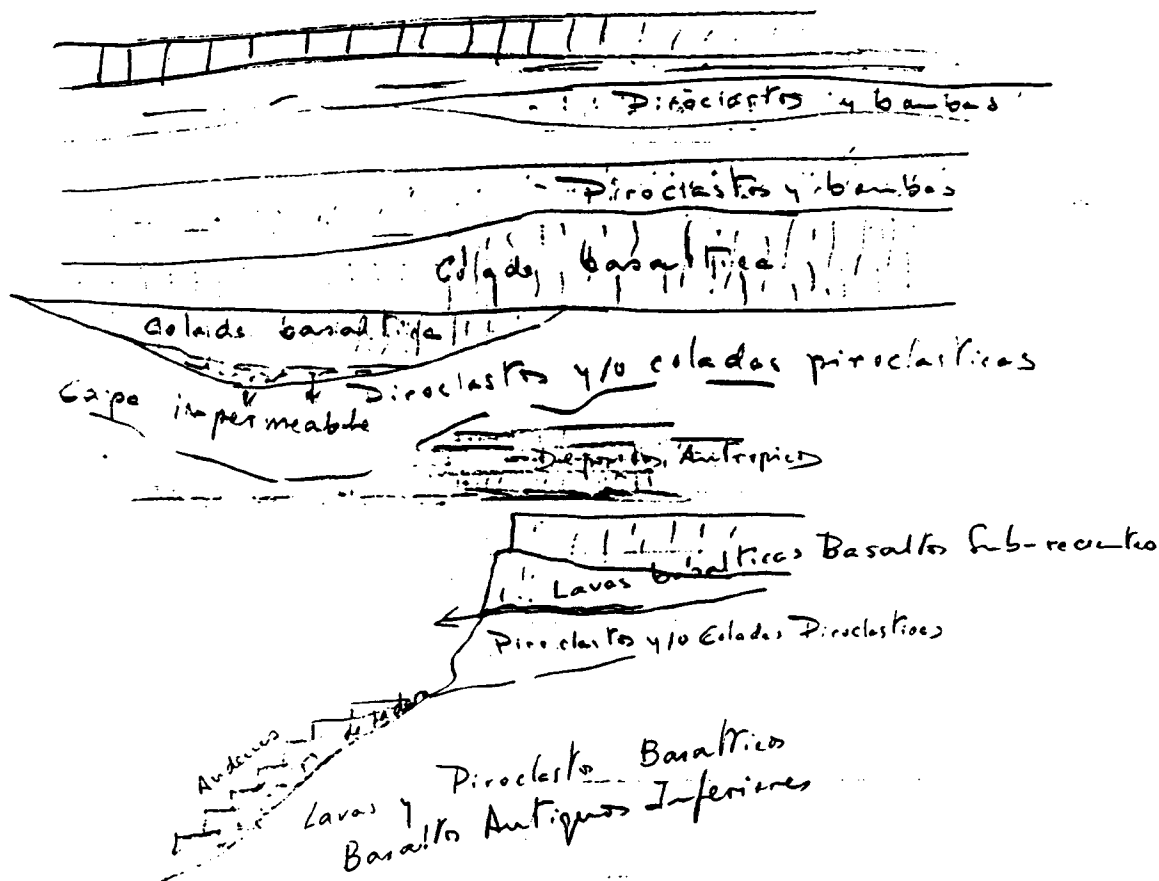 Piroclastos y bombas
Piroclastos y bombas
Colada basaltica
Colada basaltica
Piroclastos y/o coladas piroclasticas
Capa impermeable
Depositos Antropicos
Basaltos Sub-recientes
Lavas basalticas
Piroclastos y/o Coladas Piroclasticas
Andenes
de ladera
Lavas y Piroclastos Basalticos
Basaltos Antiguos Inferiores